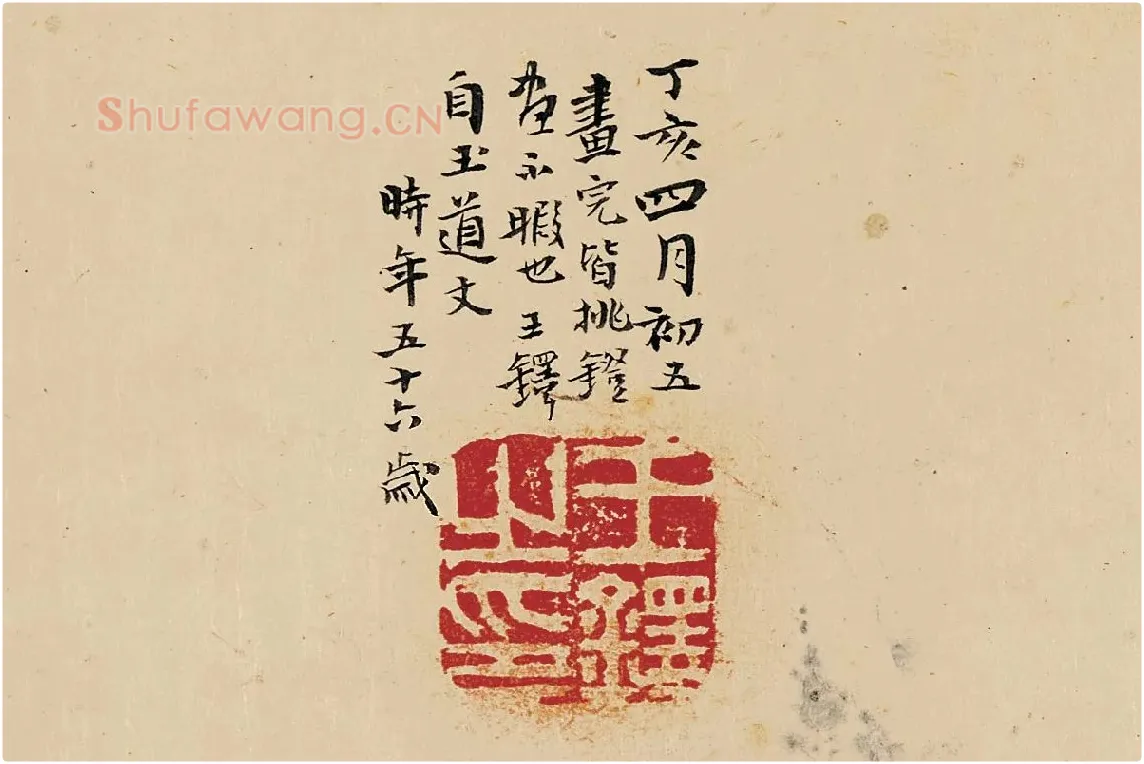 丁亥四月初五
畫完皆挑鐙
畫不暇也王鐸
自玉道文
時年五十六歲
王鐸之印
Shufawang.CN